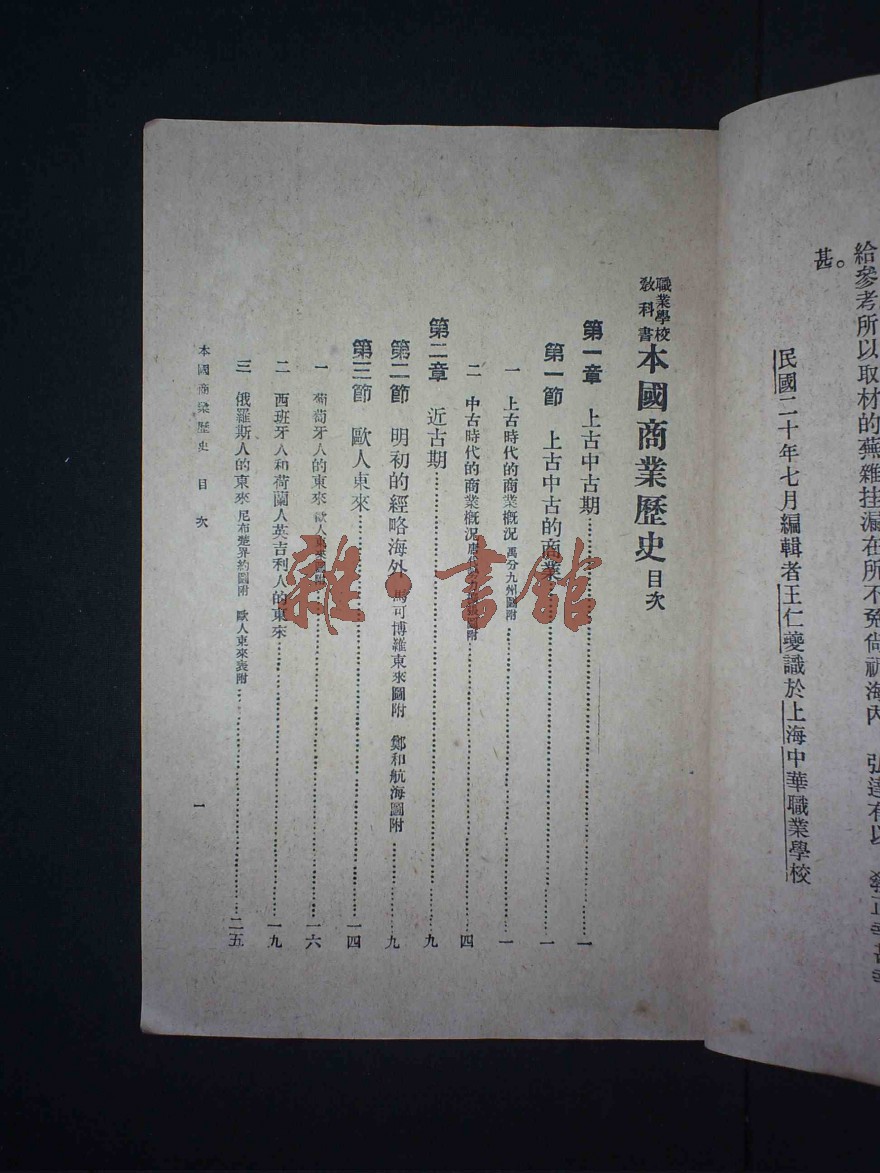 給參考所以取材的蕪雜挂漏在所不免尙祈海內　弘達有以　敎正幸甚幸
甚。
民國二十年七月編輯者王仁夔識於上海中華職業學校
職業學校
敎科書
本國商業歷史目次
第一章　上古中古期……一
第一節　上古中古的商業……一
一　上古時代的商業概況　禹分九州圖附……一
二　中古時代的商業概況……四
第二章　近古期……九
第二節　明初的經略海外　馬可博羅東來圖附　鄭和航海圖附……九
第三節　歐人東來……一四
一　葡萄牙人的東來　歐人東來圖附……一六
二　西班牙人和荷蘭人英吉利人的東來……一九
三　俄羅斯人的東來　尼布楚界約圖附　歐人東來表附……二五
本國商業歷史　目次
一
雜·書館